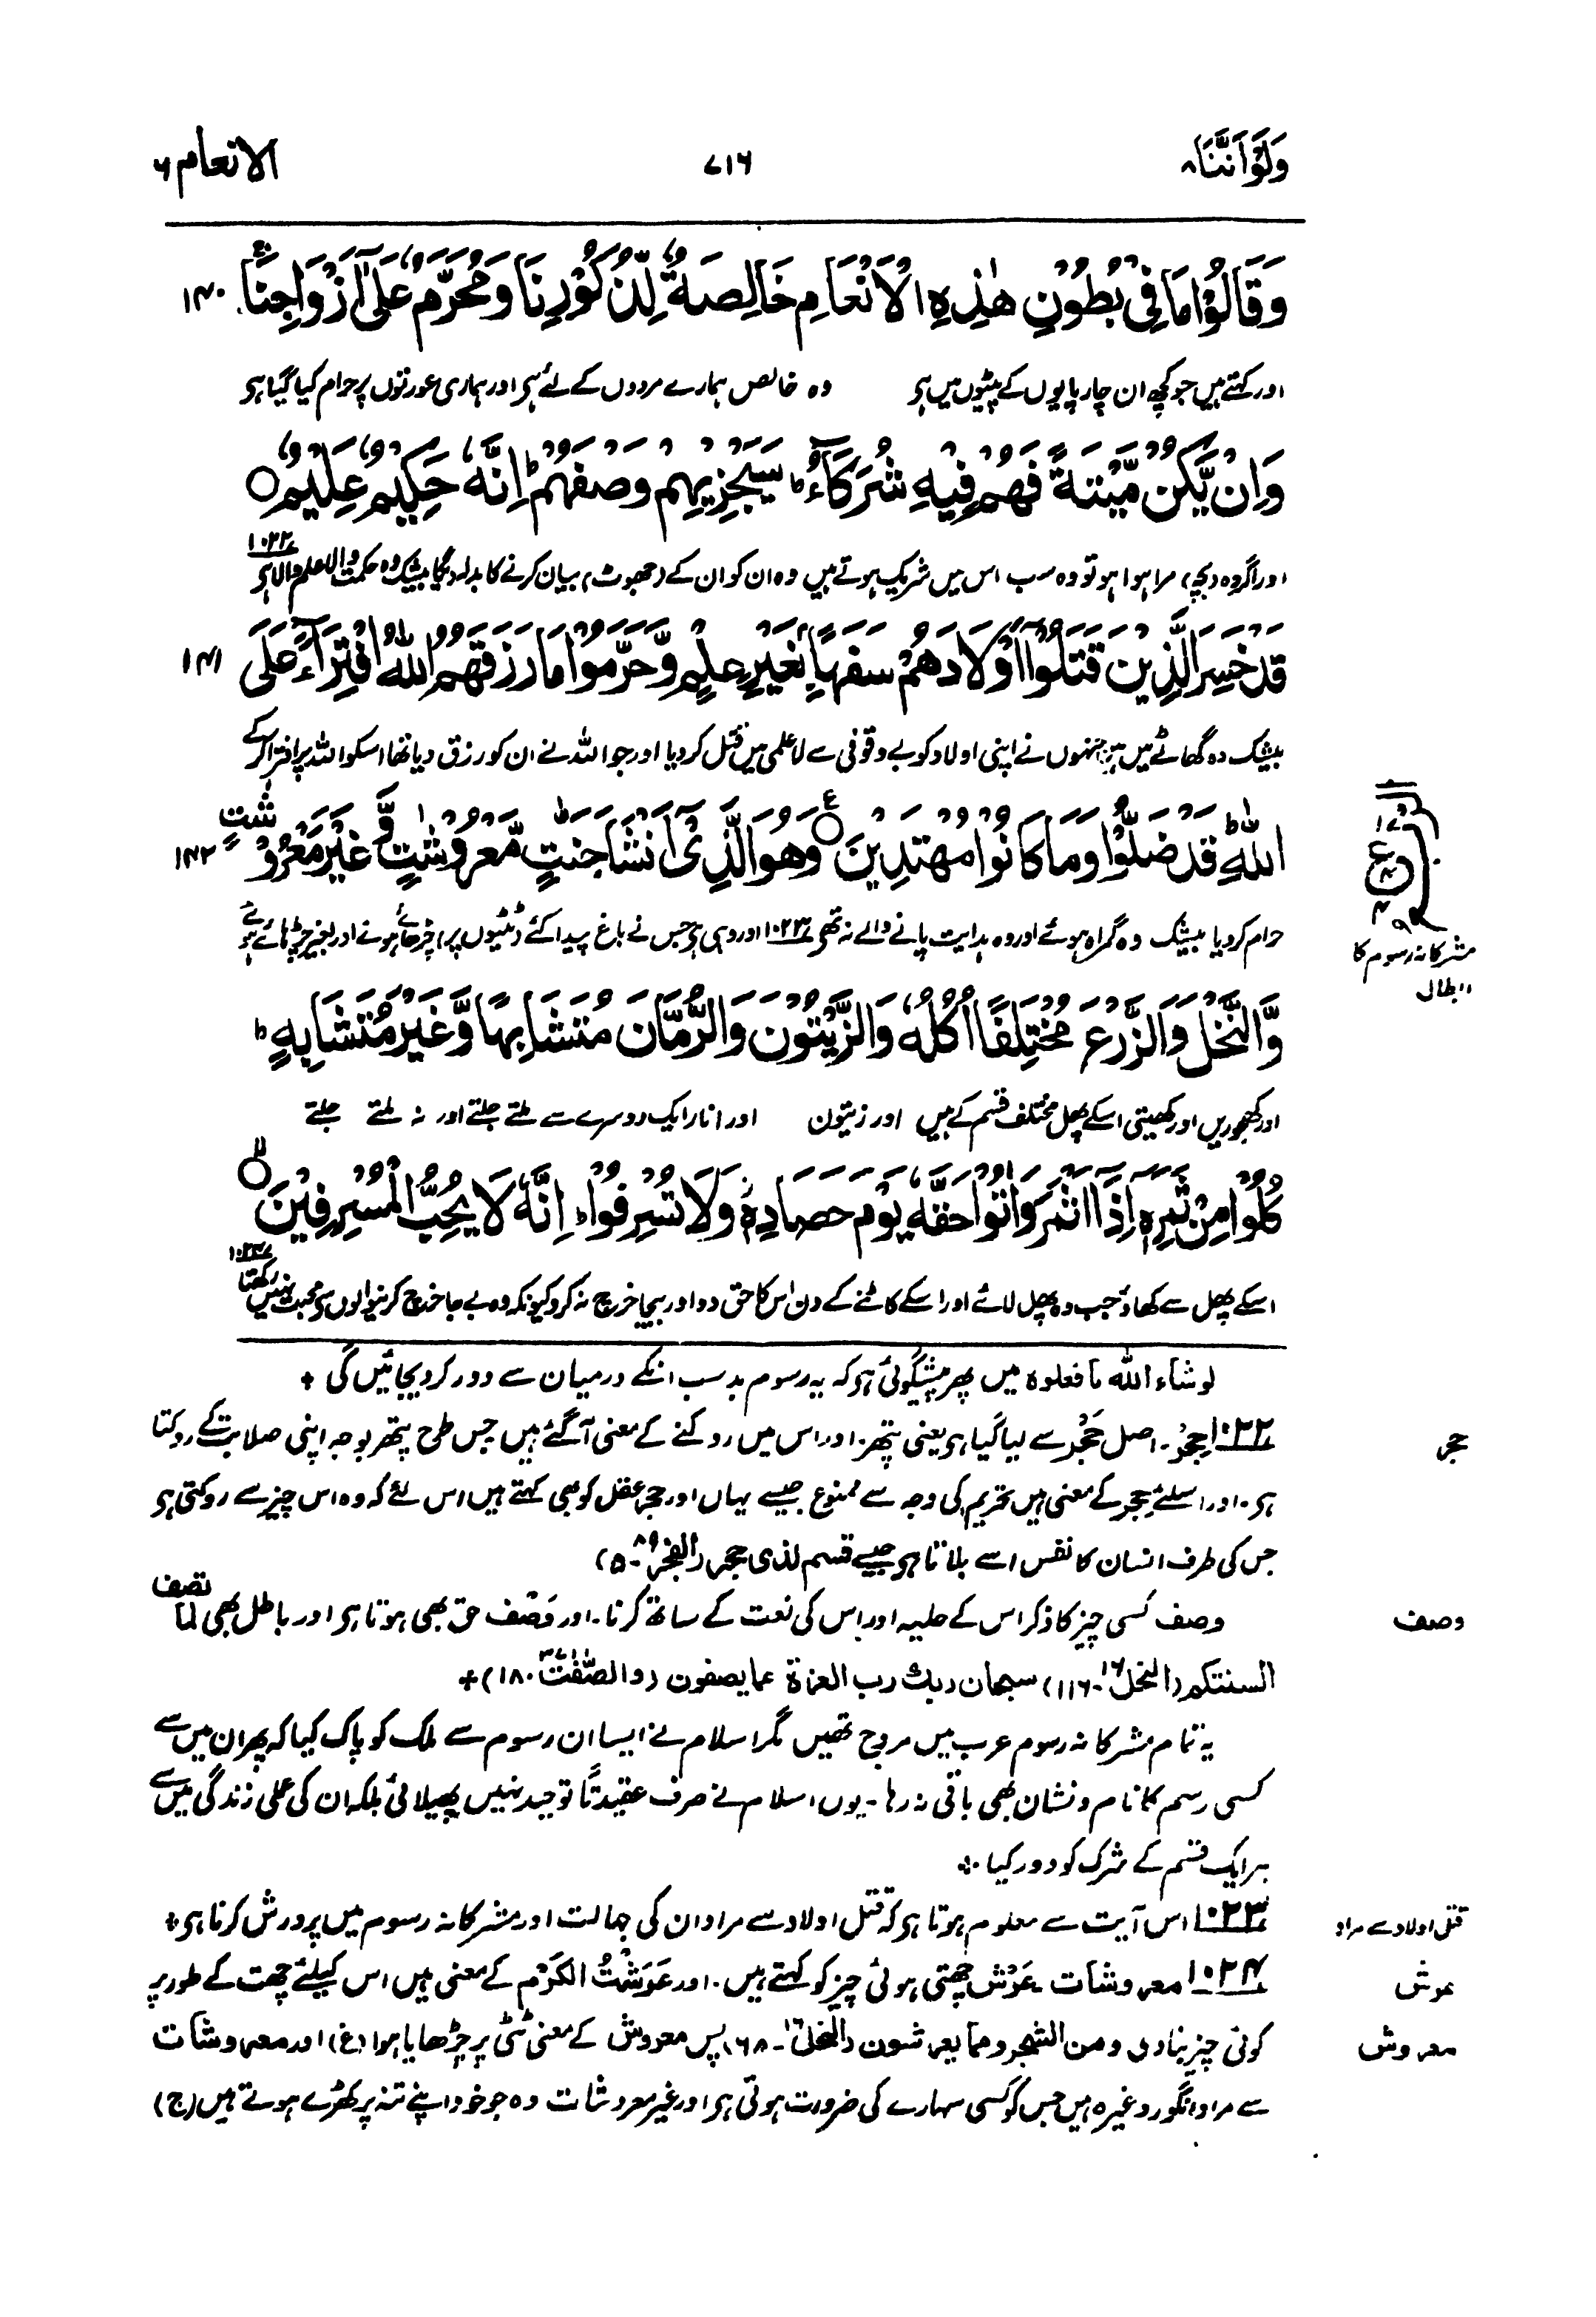 وَلَوْ اَنَّنَا ۸
۷۱۶
الانعام ۶
وَقَالُوْا مَا فِیْ بُطُوْنِ هٰذِهِ الْاَنْعَامِ خَالِصَةٌ لِّذُكُوْرِنَا وَمُحَرَّمٌ عَلٰۤى اَزْوَاجِنَا ۚ ۱۴۰
اور کہتے ہیں جو کچھ ان چارپایوں کے پیٹوں میں ہے وہ خالص ہمارے مردوں کے لئے ہے اور ہماری عورتوں پر حرام کیا گیا ہے
وَاِنْ یَّكُنْ مَّیْتَةً فَهُمْ فِیْهِ شُرَكَآءُ ؕ سَیَجْزِیْهِمْ وَصْفَهُمْ ؕ اِنَّهٗ حَكِیْمٌ عَلِیْمٌ ○
اور اگر وہ (بچہ) مرا ہوا ہو تو وہ سب اس میں شریک ہوتے ہیں وہ ان کو ان کے (جھوٹ) بیان کرنے کا بدلہ دیگا بیشک وہ حکمت والا علم والا ہے ۱۰۲۲
قَدْ خَسِرَ الَّذِیْنَ قَتَلُوْۤا اَوْلَادَهُمْ سَفَهًۢا بِغَیْرِ عِلْمٍ وَّحَرَّمُوْا مَا رَزَقَهُمُ اللّٰهُ افْتِرَآءً عَلَى ۱۴۱
بیشک وہ گھاٹے میں ہیں جنہوں نے اپنی اولاد کو بے وقوفی سے لاعلمی میں قتل کر دیا اور جو اللہ نے ان کو رزق دیا تھا اسکو اللہ پر افترا کرکے
اللّٰهِ ؕ قَدْ ضَلُّوْا وَمَا كَانُوْا مُهْتَدِیْنَ ○ ع وَهُوَ الَّذِیْۤ اَنْشَاَ جَنّٰتٍ مَّعْرُوْشٰتٍ وَّغَیْرَ مَعْرُوْشٰتٍ ۱۴۲
حرام کر دیا بیشک وہ گمراہ ہوئے اور وہ ہدایت پانے والے نہ تھے ۱۰۲۳ اور وہی ہے جس نے باغ پیدا کئے (ٹٹیوں پر) چڑھائے ہوئے اور بغیر چڑھائے ہوئے
مشرکانہ رسوم کا
ابطال
وَّالنَّخْلَ وَالزَّرْعَ مُخْتَلِفًا اُكُلُهٗ وَالزَّیْتُوْنَ وَالرُّمَّانَ مُتَشَابِهًا وَّغَیْرَ مُتَشَابِهٍ ؕ
اور کھجوریں اور کھیتی اسکے پھل مختلف قسم کے ہیں اور زیتون اور انار ایک دوسرے سے ملتے جلتے اور نہ ملتے جلتے
كُلُوْا مِنْ ثَمَرِهٖۤ اِذَاۤ اَثْمَرَ وَاٰتُوْا حَقَّهٗ یَوْمَ حَصَادِهٖ ۖ وَلَا تُسْرِفُوْا ؕ اِنَّهٗ لَا یُحِبُّ الْمُسْرِفِیْنَ ○
اسکے پھل سے کھاؤ جب وہ پھل لائے اور اسکے کاٹنے کے دن اس کا حق دو اور بیجا خرچ نہ کرو کیونکہ وہ بے جا خرچ کرنیوالوں سے محبت نہیں رکھتا ۱۰۲۴
لوشاء اللہ مافعلوہ میں پھر پیشگوئی ہے کہ یہ رسوم بد سب انکے درمیان سے دور کر دیجائیں گی +
حجر
۱۰۲۲ حِجْرٌ۔ اصل حَجَر سے لیا گیا ہے یعنی پتھر۔ اور اس میں روکنے کے معنی آگئے ہیں جس طرح پتھر بوجہ اپنی صلابت کے روکتا
ہے۔ اور اسلئے حِجر کے معنی ہیں تحریم کی وجہ سے ممنوع جیسے یہاں اور حجر عقل کو بھی کہتے ہیں اس لئے کہ وہ اس چیز سے روکتی ہے
جس کی طرف انسان کا نفس اسے بلاتا ہے جیسے قسم لذی حجر (الفجر ۸۹۔۵)
وصف
وصف کسی چیز کا ذکر اس کے حلیہ اور اس کی نعت کے ساتھ کرنا۔ اور وَصْف حق بھی ہوتا ہے اور باطل بھی لما تصف
السنتکم (النحل ۱۶۔۱۱۶) سبحان ربك رب العزة عما یصفون (والصّٰفّٰت ۳۷۔۱۸۰) +
یہ تمام مشرکانہ رسوم عرب میں مروج تھیں مگر اسلام نے ایسا ان رسوم سے ملک کو پاک کیا کہ پھر ان میں سے
کسی رسم کا نام و نشان بھی باقی نہ رہا۔ یوں اسلام نے صرف عقیدتًا توحید نہیں پھیلائی بلکہ ان کی عملی زندگی میں سے
ہر ایک قسم کے شرک کو دور کیا۔
قتل اولاد سے مراد
۱۰۲۳ اس آیت سے معلوم ہوتا ہے کہ قتل اولاد سے مراد ان کی جہالت اور مشرکانہ رسوم میں پرورش کرنا ہے +
عرش
۱۰۲۴ معروشات۔ عَرْش چھتی ہوئی چیز کو کہتے ہیں۔ اور عَرَشْتُ الکَرْم کے معنی ہیں اس کیلئے چھت کے طور پر
معروش
کوئی چیز بنا دی ومن الشجر ومما یعرشون (النحل ۱۶۔۶۸) پس معروش کے معنی ٹٹی پر چڑھایا ہوا (غ) اور معروشات
سے مراد انگور وغیرہ ہیں جس کو کسی سہارے کی ضرورت ہوتی ہے اور غیر معروشات وہ جو خود اپنے تنہ پر کھڑے ہوتے ہیں (ج)